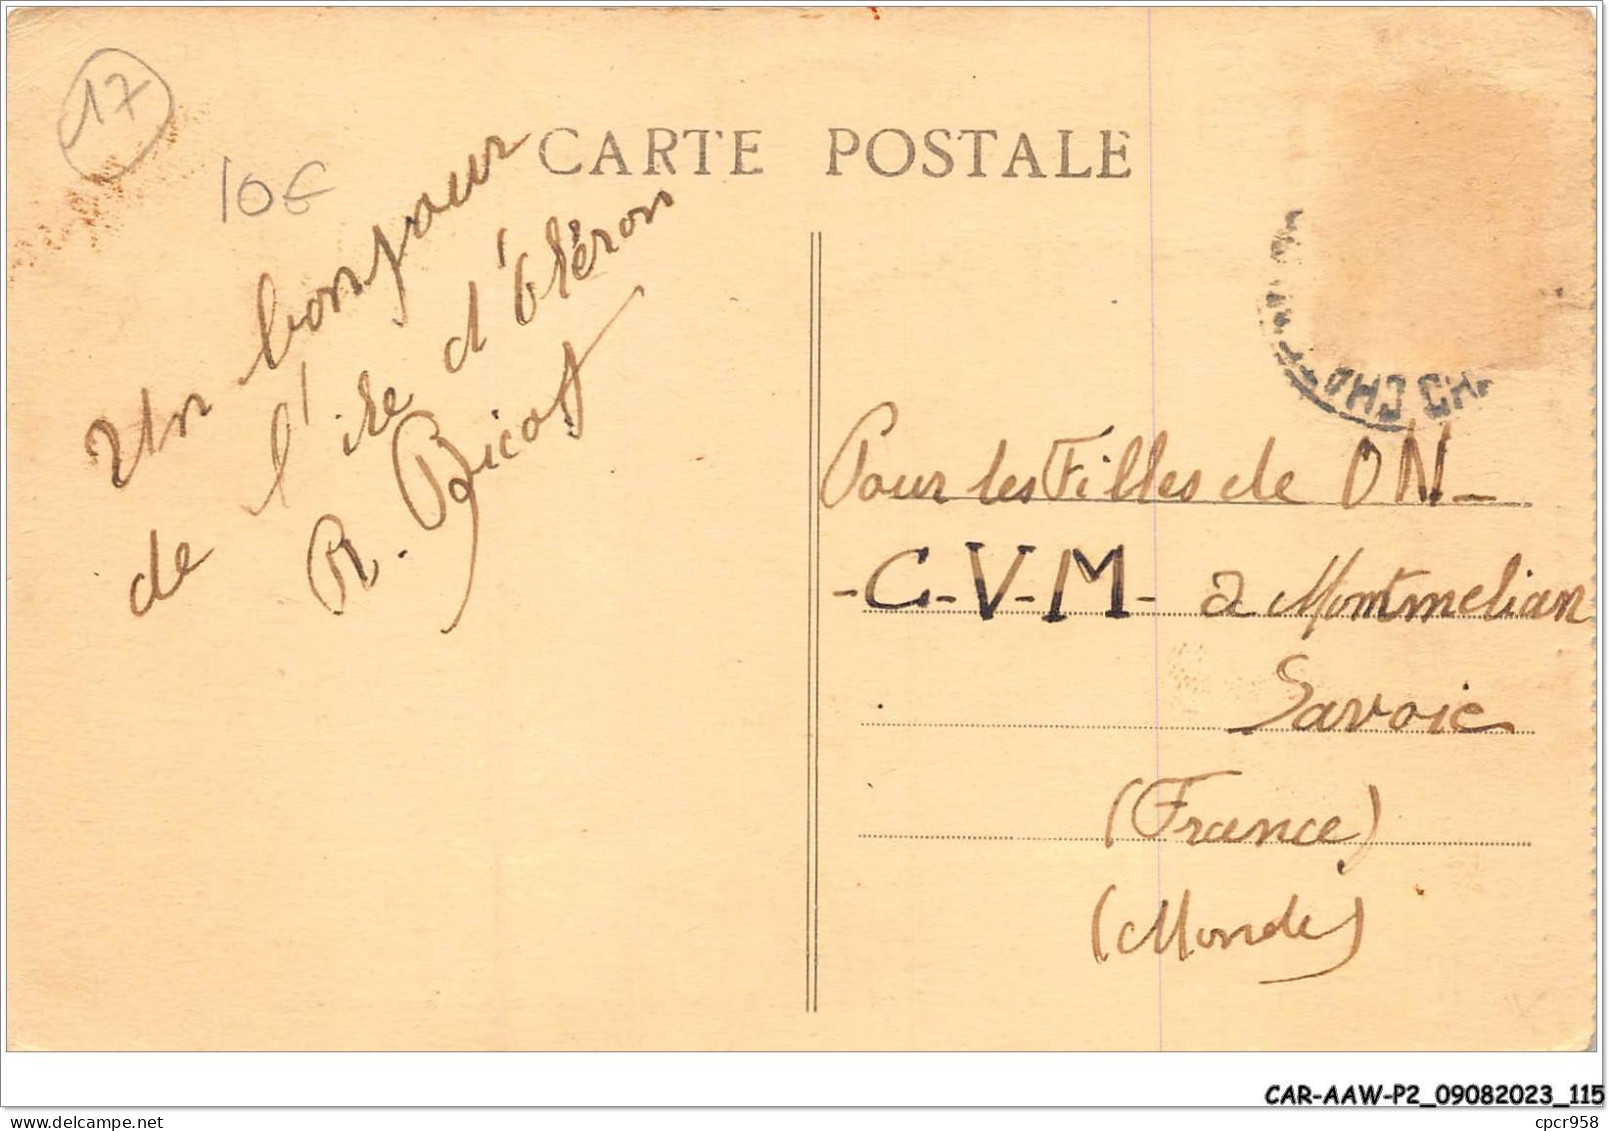 17
10€
CARTE POSTALE
Un bonjour
de l'île d'Oléron
R. Bricot
Pour les Filles de ON-
-C-V-M- à Montmelian
Savoie
(France)
(Monde)
CAR-AAW-P2_09082023_115
www.delcampe.net
cpcr958